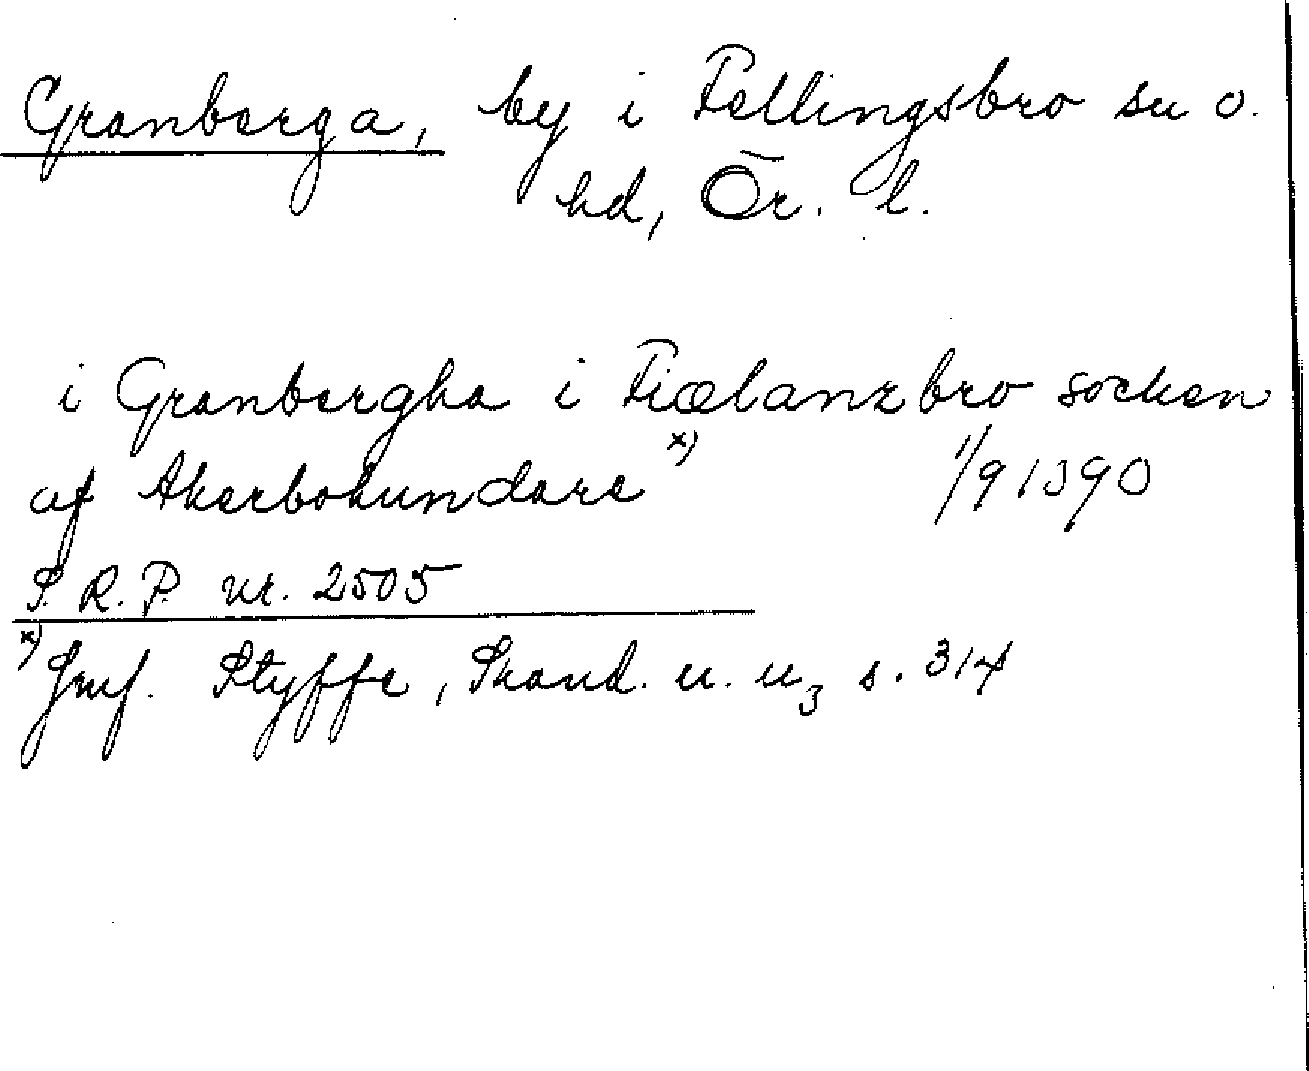 Granberga, by i Fellingsbro sn o.
hd, Ör. l.
i Granbergha i Fiælanzbro socken
af Akerbohundare x) 1/9 1390
S. R. P. nr. 2505
x) Jmf. Styffe, Skand. u. u3 s. 314